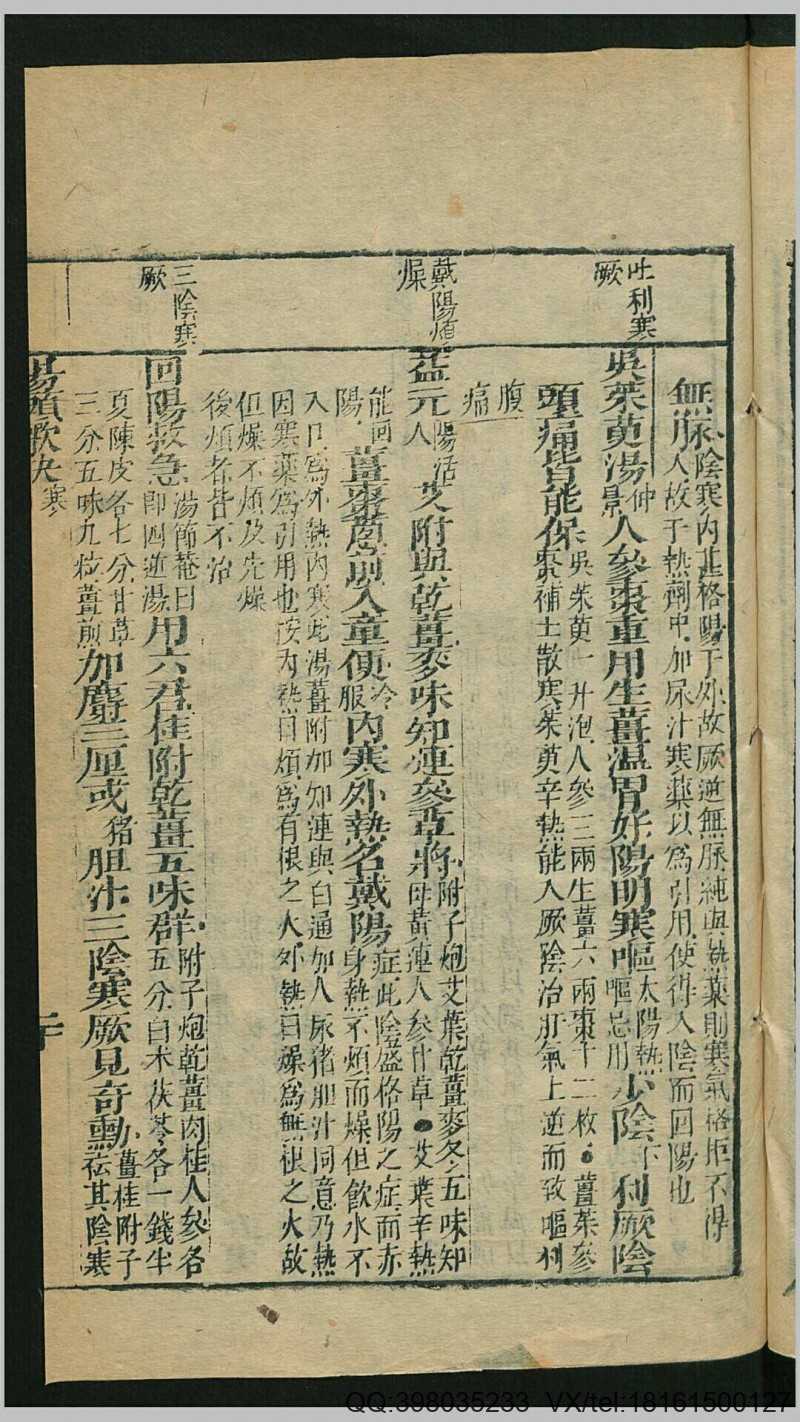 吐利寒
厥
戴陽煩
燥
三陰寒
厥
無脉陰寒內甚格陽于外故厥逆無脉純與熱藥則寒氣格拒不得
人故于熱劑中加尿汁寒藥以為引用使得入陰而回陽也
吳茱萸湯仲景人參棗重用生薑溫胃好陽明寒嘔太陽熱嘔忌用少陰下利厥陰
頭痛皆能保吳茱萸一升泡人參三兩生薑六兩棗十二枚●薑茱參
棗補土散寒茱萸辛熱能入厥陰治肝氣上逆而致嘔利
腹
痛
益元陽活人艾附與乾薑麥味知連參草將附子炮艾葉乾薑麥冬五味知
母黃連人參甘草●艾葉辛熱
能回陽薑棗葱煎入童便冷服內寒外熱名戴陽症此陰盛格陽之症面赤
身熱不煩而燥但飲水不
入口為外熱內寒此湯薑附加知連與白通加人尿猪胆汁同意乃熱
因寒藥為引用也按內熱曰煩為有根之火外熱曰燥為無根之火故
但燥不煩及先燥
後煩者皆不治
回陽救急湯節菴曰即四逆湯用六君桂附乾薑五味群附子炮乾薑肉桂人參各
五分白术茯苓各一錢半
夏陳皮各七分甘草
三分五味九粒薑煎加麝三厘或猪胆汁三陰寒厥見奇勳薑桂附子
祛其陰寒
湯頭歌決寒
二十
QQ:398035233 VX/tel:18161500127